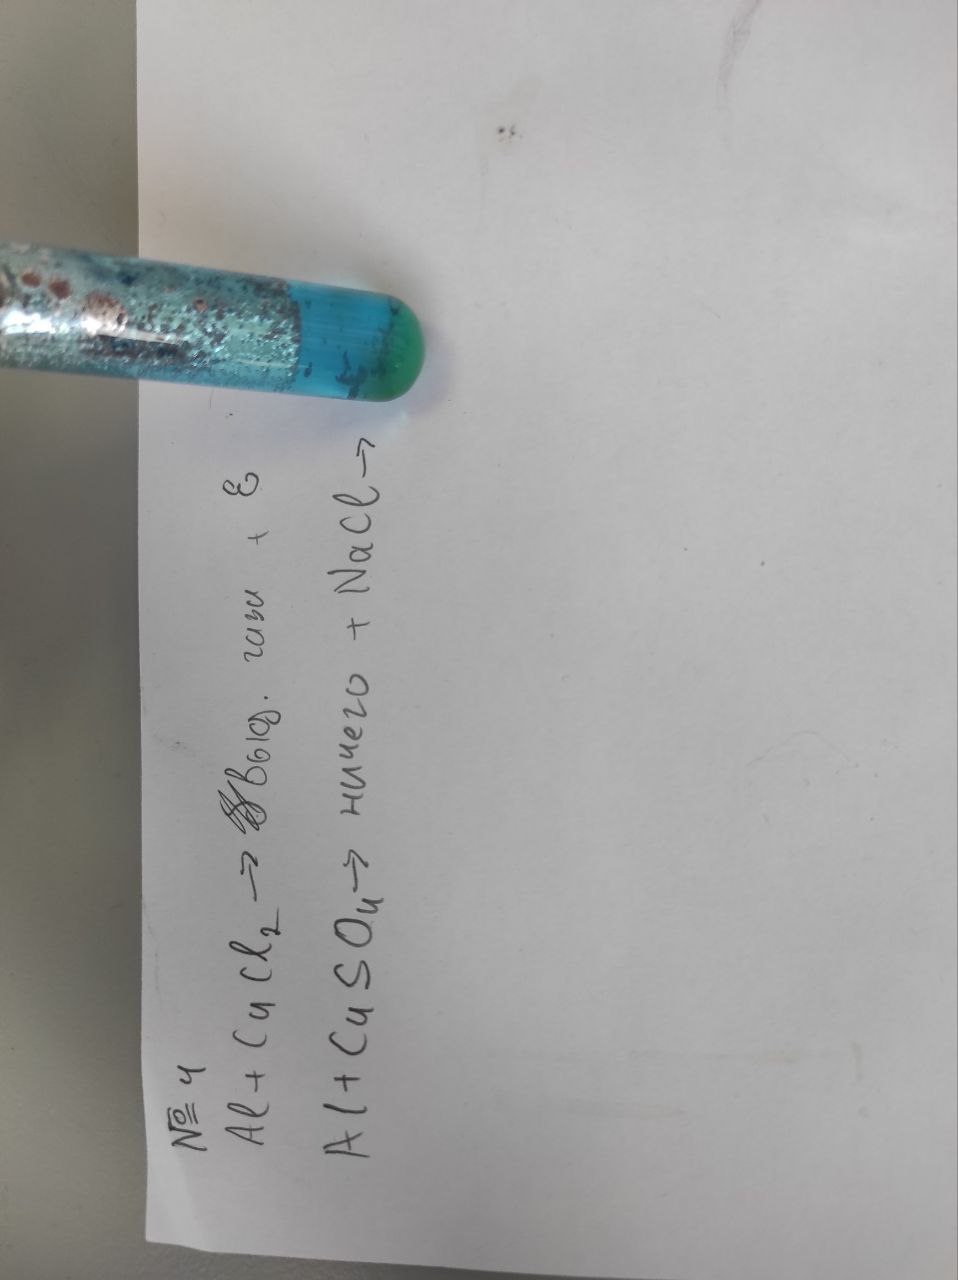 № 4
Al + CuCl₂ → выд. газа +
Al + CuSO₄ → ничего + NaCl →